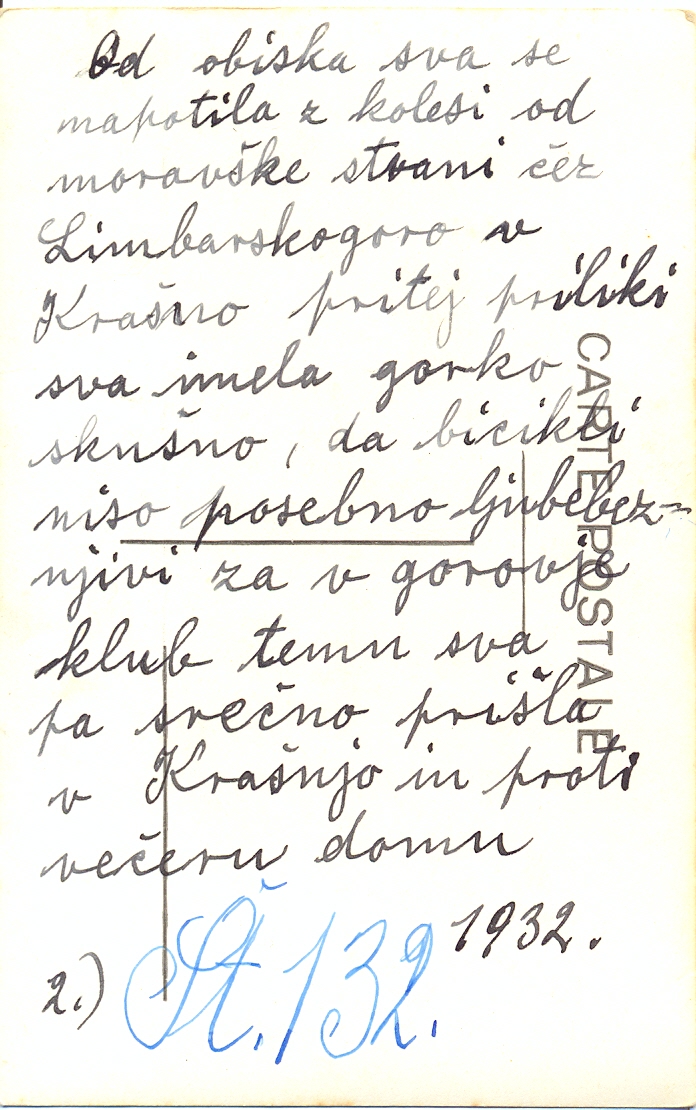 Od obiska sva se
napotila z kolesi od
moravške strani čez
Limbarskogoro v
Krašno pritej priliki
sva imela gorko
skušno, da bicikli
niso posebno ljubebez=
njivi za v gorovje
klub temu sva
pa srečno prišla
v Krašnjo in proti
večeru domu
1932.
2.) Št. 132.
CARTE POSTALE